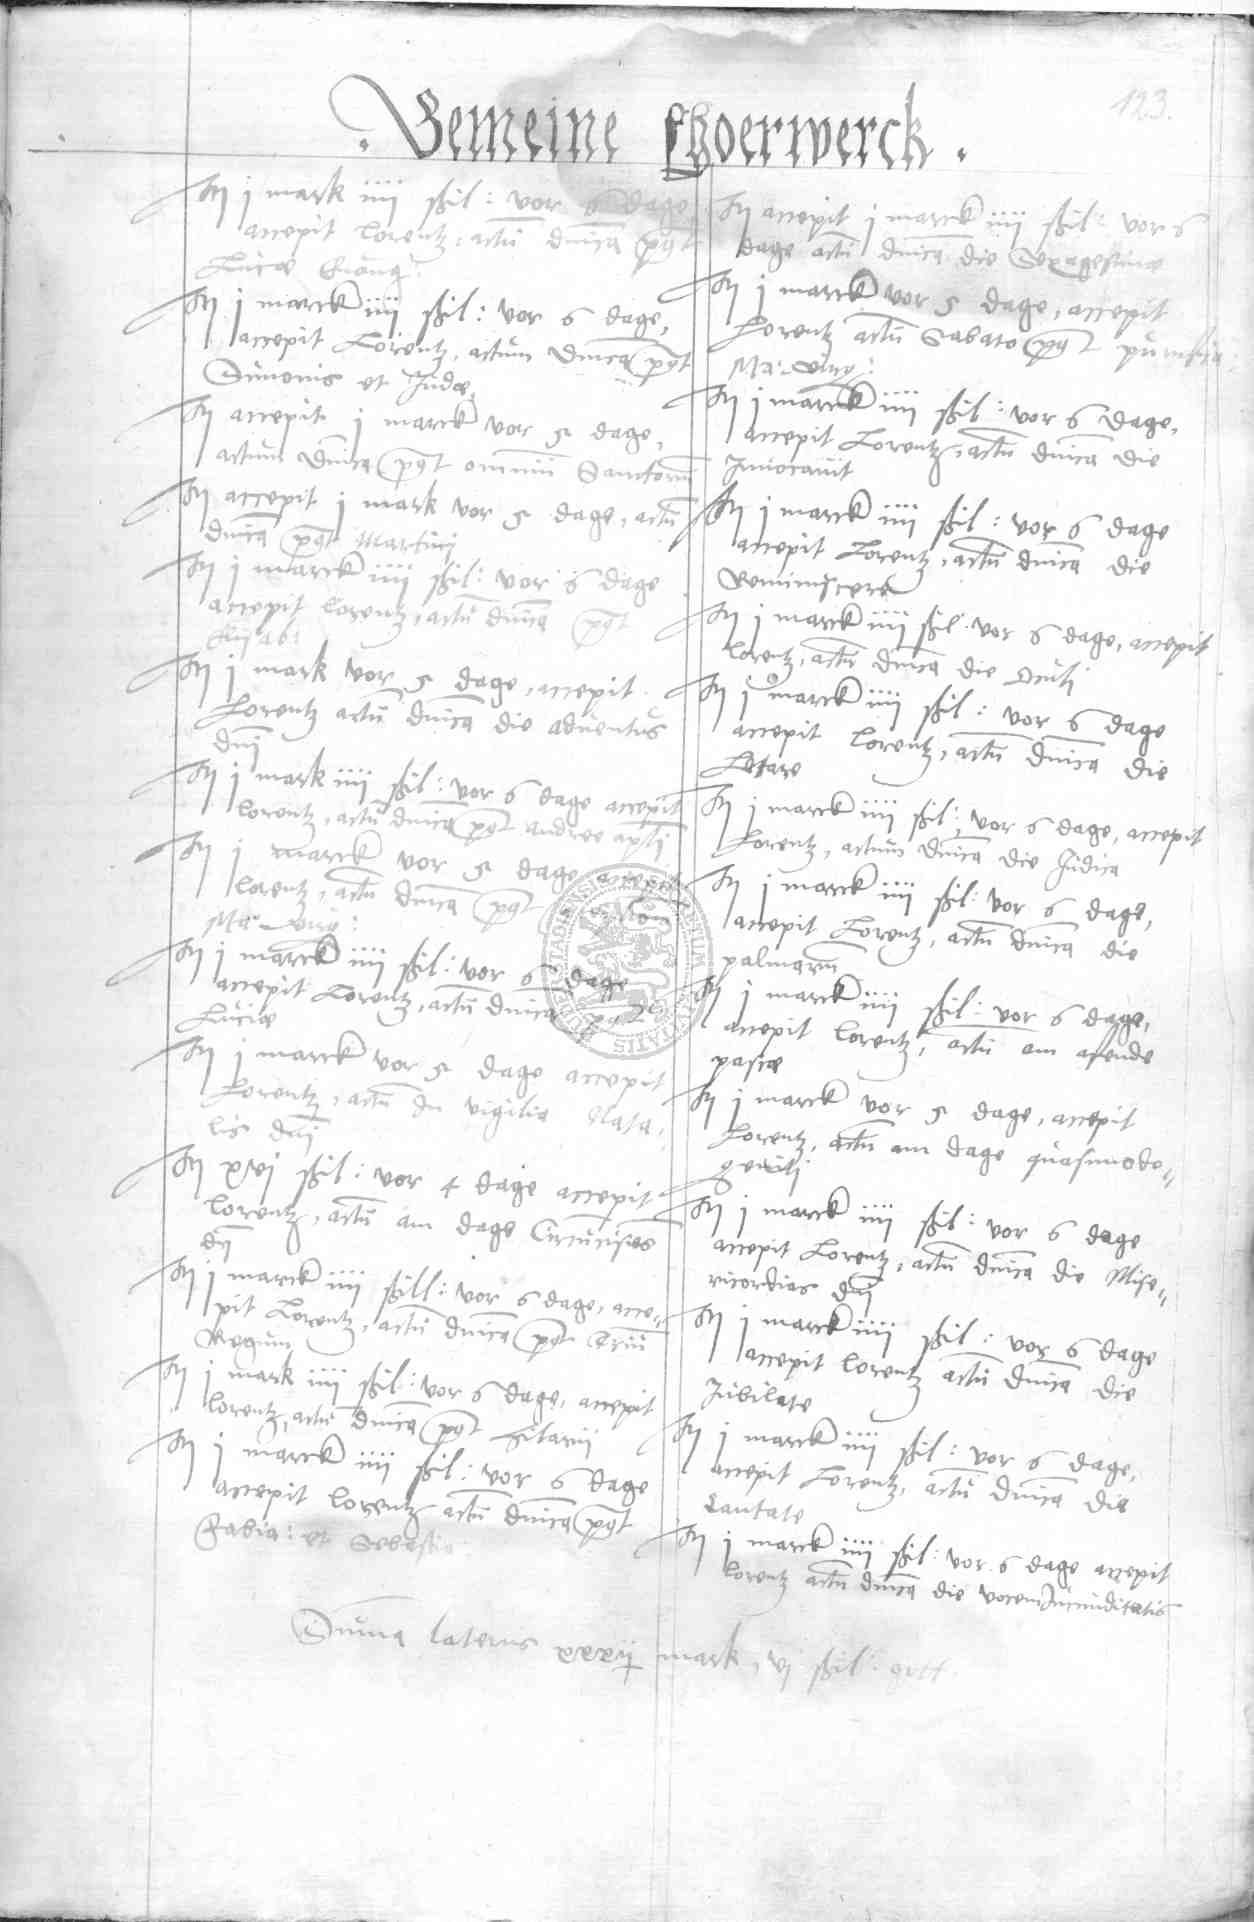 123.
. Gemeine Fhoerwerck .
Itj j mark iiij schil : vor 6 dage
accepit Lorentz, actū dnīca pꝰt
Lucæ Euang:
Itj j marck iiij schil : vor 6 dage,
accepit Lorentz, actum dnica pꝰt
Simonis et Judæ
Itj accepit j marck vor 5 dage,
actum dnica pꝰt omniū Sanctorū
Itj accepit j mark vor 5 dage, actū
dnica pꝰt Martinj
Itj j marck iiij schil : vor 6 dage
accepit Lorentz, actū dnica pꝰt
Elizab:
Itj j mark vor 5 dage, accepit
Lorentz actū dnica die adventus
dnj
Itj j mark iiij schil : vor 6 dage accepit
Lorentz, actū dnica pꝰt andree apli
Itj j marck vor 5 dage accepit
Lorentz, actū dnica pꝰt
Ma: virg:
Itj j marck iiij schil : vor 6 dage
accepit Lorentz, actū dnica pꝰt
Luciæ
Itj j marck vor 5 dage accepit
Lorentz, actū in vigilia Nata,
lis dnj
Itj xvj schil : vor 4 dage accepit
Lorentz, actū am dage Circumcisios
dnj
Itj j marck iiij schill : vor 6 dage, acce„
pit Lorentz, actū dnica pꝰt Triū
Regum
Itj j mark iiij schil : vor 6 dage, accepit
Lorentz, actū dnica pꝰt Hilarij
Itj j marck iiij schil : vor 6 dage
accepit Lorentz actū dnica pꝰt
Fabia: et Sebastia:
Itj accepit j marck iiij schil : vor 6
dage actū dnica die Sexagesimæ
Itj j marck vor 5 dage, accepit
Lorentz actū Sabato pꝰt purifica:
Ma: virg:
Itj j marck iiij schil : vor 6 dage,
accepit Lorentz, actū dnica die
Invocavit
Itj j marck iiij schil : vor 6 dage
accepit Lorentz, actū dnica die
Reminiscere
Itj j marck iiij schil : vor 6 dage, accepit
Lorentz, actū dnica die Oculi
Itj j marck iiij schil : vor 6 dage
accepit Lorentz, actū dnica die
Letare
Itj j marck iiij schil : vor 6 dage, accepit
Lorentz, actum dnica die Judica
Itj j marck iiij schil : vor 6 dage,
accepit Lorentz, actū dnica die
palmarū
Itj j marck iiij schil : vor 6 dage,
accepit Lorentz, actū am avende
pascæ
Itj j marck vor 5 dage, accepit
Lorentz, actū am dage quasimodo„
geniti
Itj j marck iiij schil : vor 6 dage
accepit Lorentz, actū dnica die Mise„
ricordias dnj
Itj j marck iiij schil : vor 6 dage
accepit Lorentz actū dnica die
Jubilate
Itj j marck iiij schil : vor 6 dage,
accepit Lorentz, actū dnica die
Cantate
Itj j marck iiij schil : vor 6 dage accepit
Lorentz actū dnica die vocem Jucunditatis
Suma lateris xxxij mark, vj schil : gott.